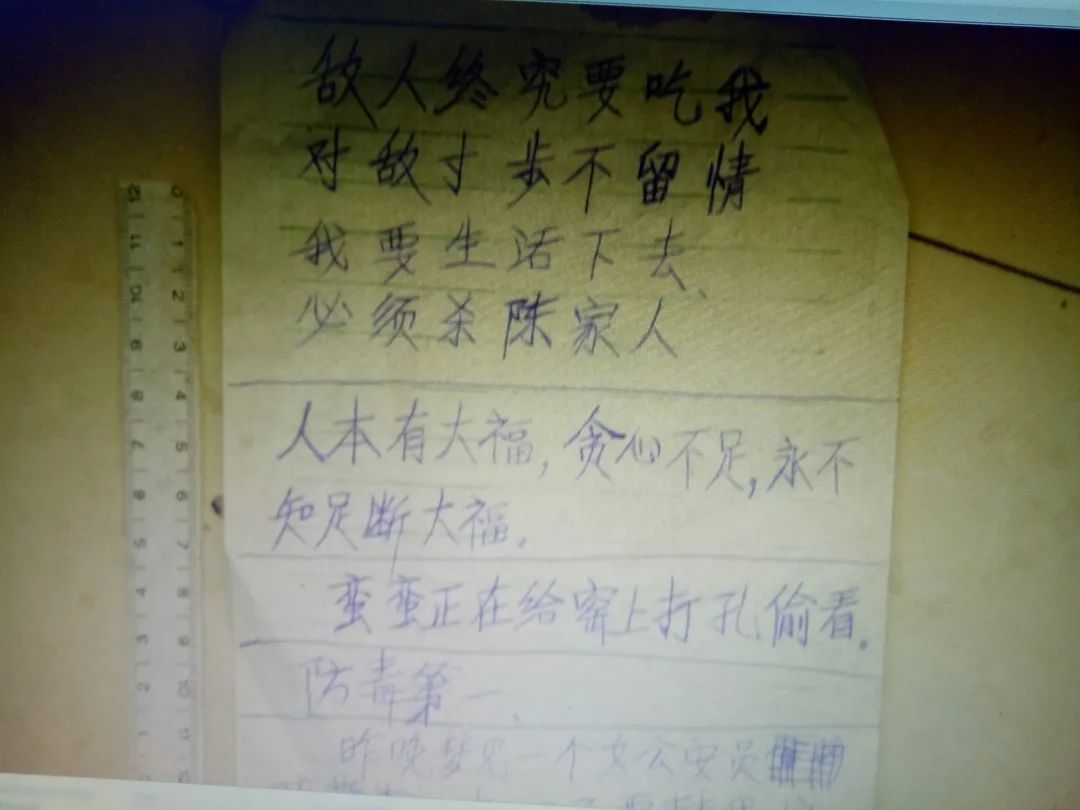 敌人终究要吃我
对敌寸步不留情
我要生活下去、
必须杀陈家人
人本有大福，贪心不足，永不
知足断大福。
蛮蛮正在给窑上打孔偷看。
防毒第一、
昨晚梦见一个女公安员